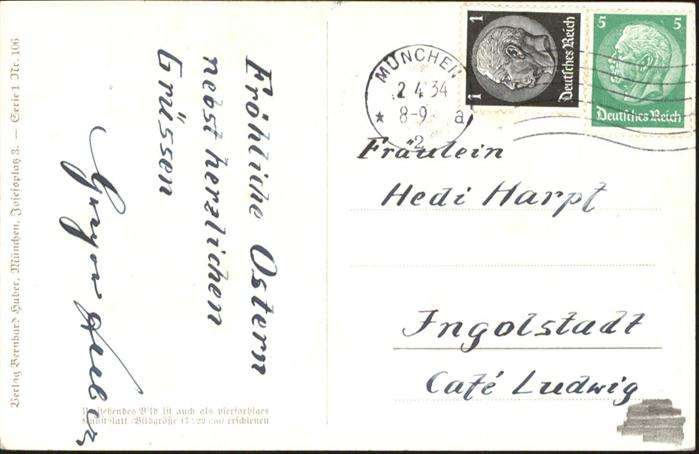 Verlag Bernhard Huber, München, Josefsplatz 3. — Serie 1 Nr. 106
Fröhliche Ostern
nebst herzlichen
Grüssen
Huber
stehendes Bild ist auch als vierfarbiges
Kunstblatt (Bildgröße 17:22 cm) erschienen
MÜNCHEN
2.4.34
8-9 a
* 2
1 1
Deutsches Reich
5 5
Deutsches Reich
Fräulein
Hedi Harpf
Ingolstadt
Café Ludwig